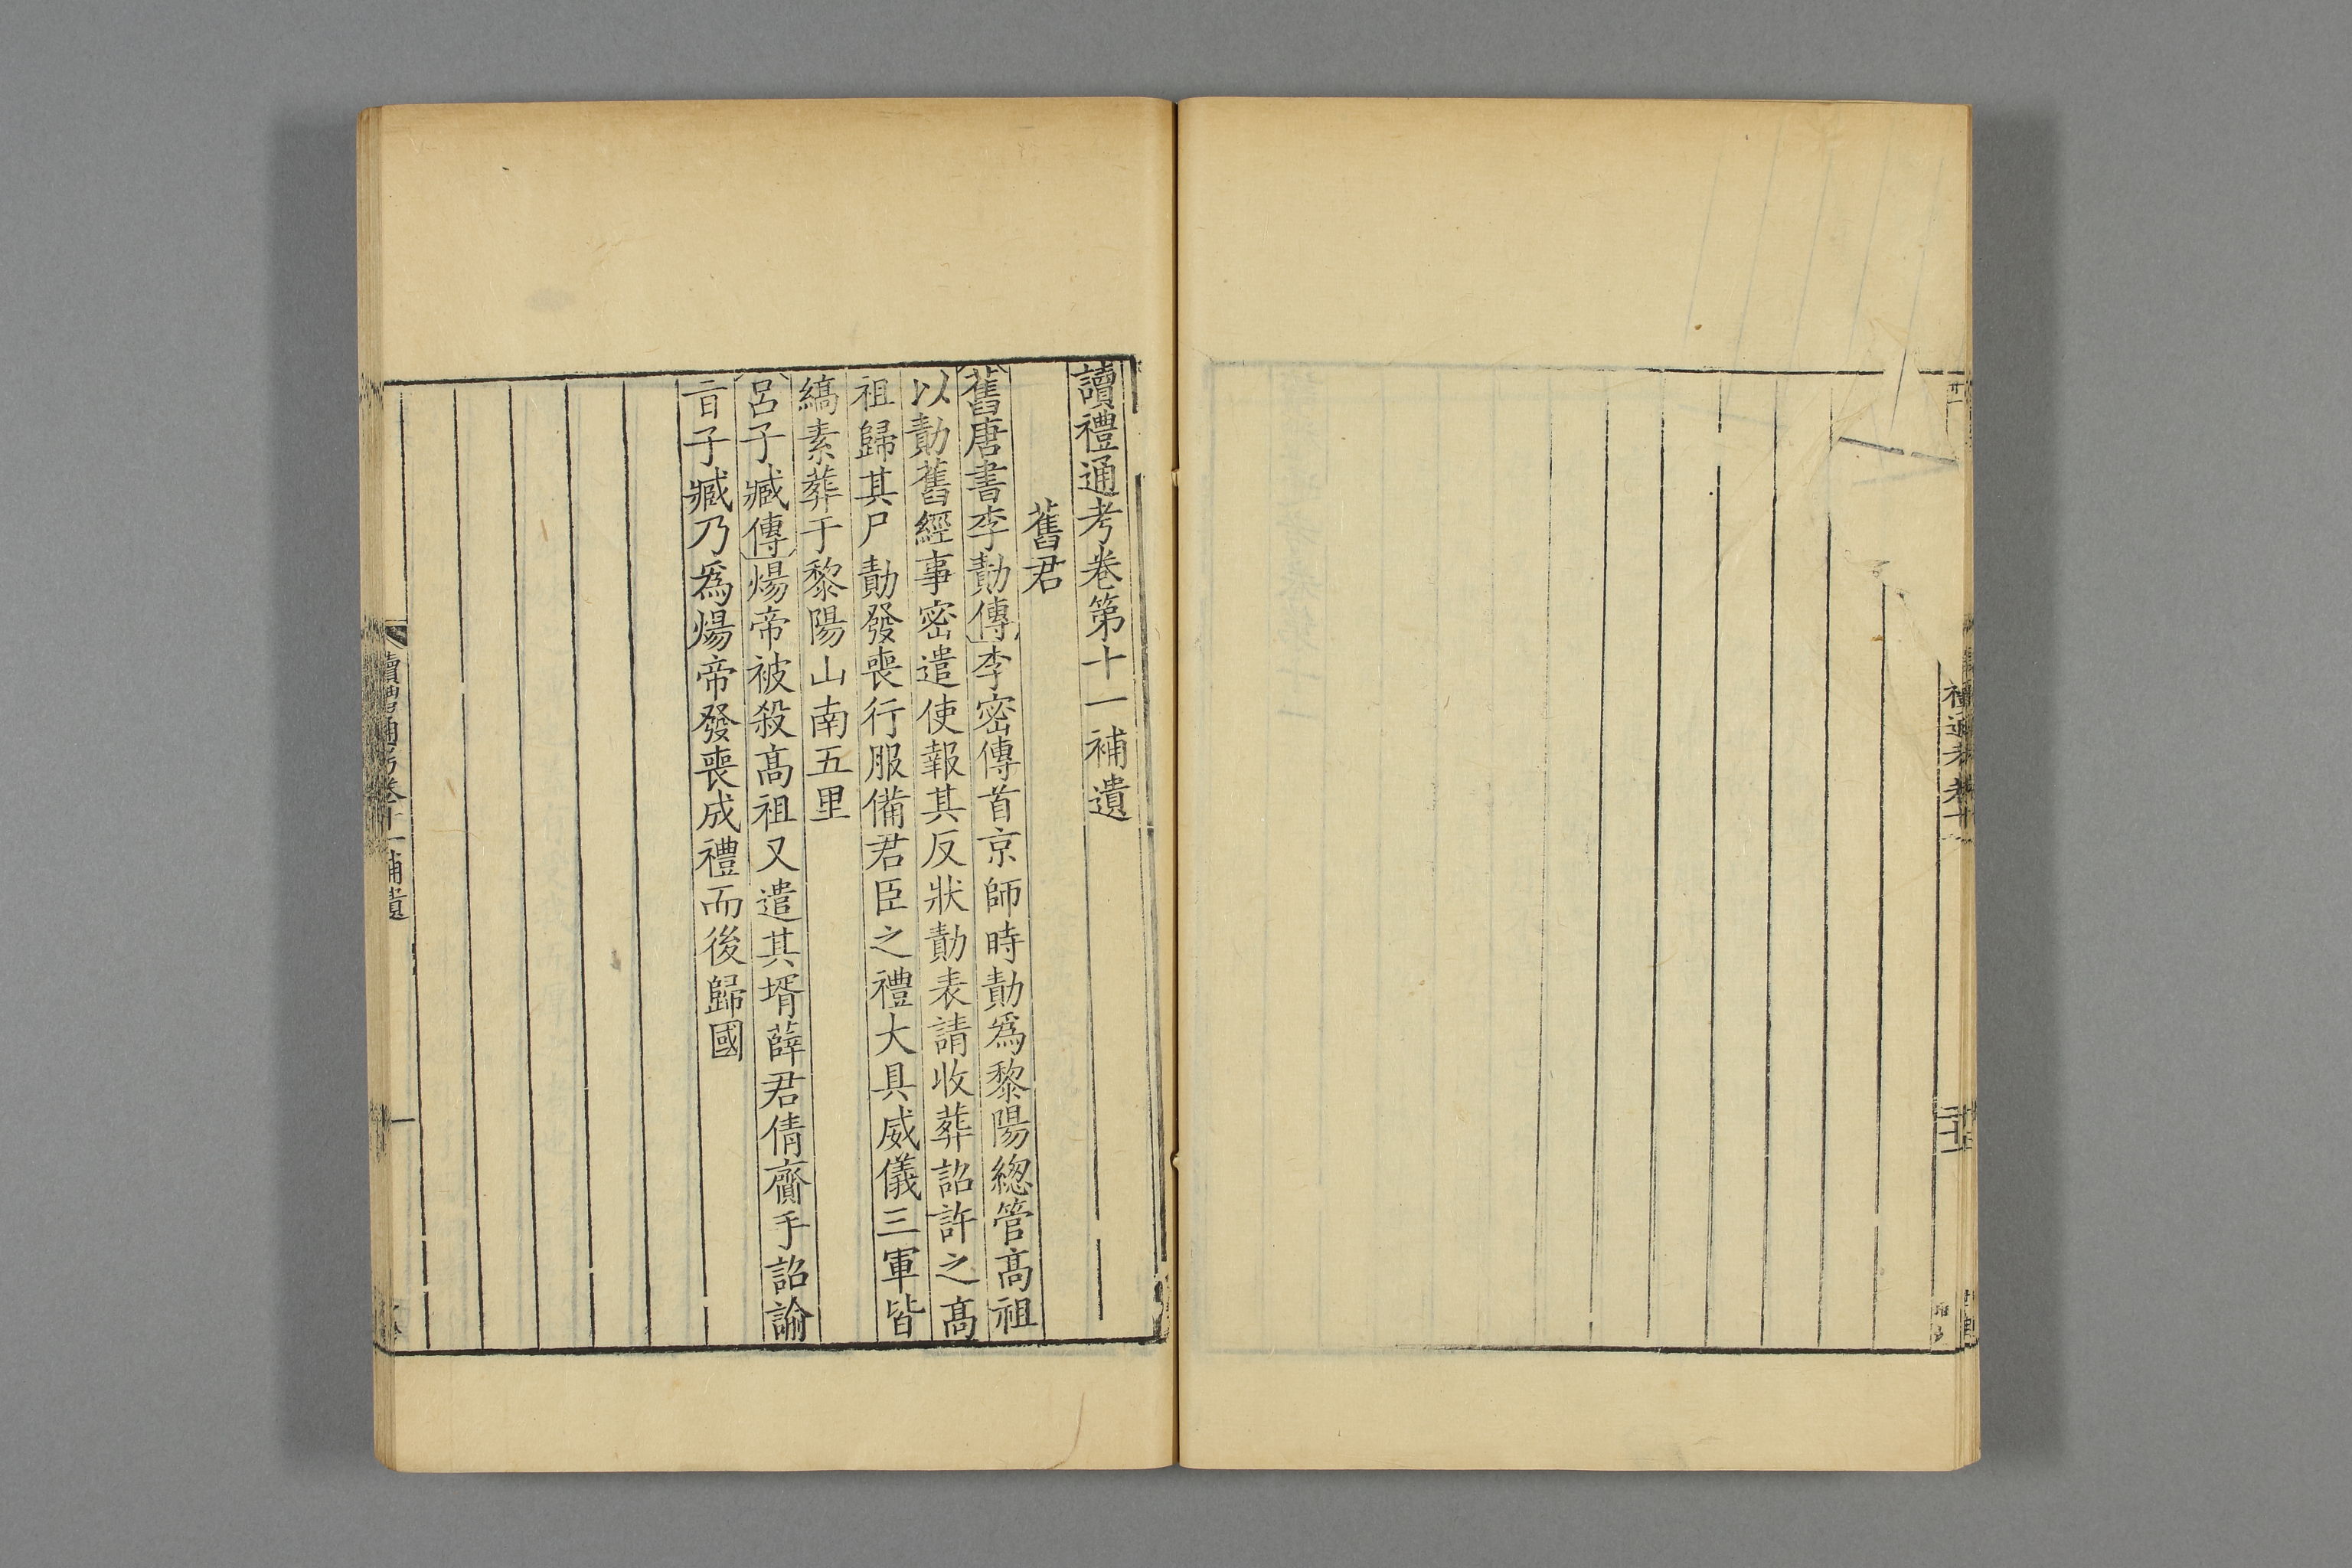 讀禮通考卷第十一補遺
舊君
舊唐書李勣傳李密傳首京師時勣爲黎陽總管高祖
以勣舊經事密遣使報其反狀勣表請收葬詔許之高
祖歸其尸勣發喪行服備君臣之禮大具威儀三軍皆
縞素葬于黎陽山南五里
呂子臧傳煬帝被殺高祖又遣其壻薛君倩齎手詔諭
旨子臧乃爲煬帝發喪成禮而後歸國
讀禮通考卷十一補遺
一